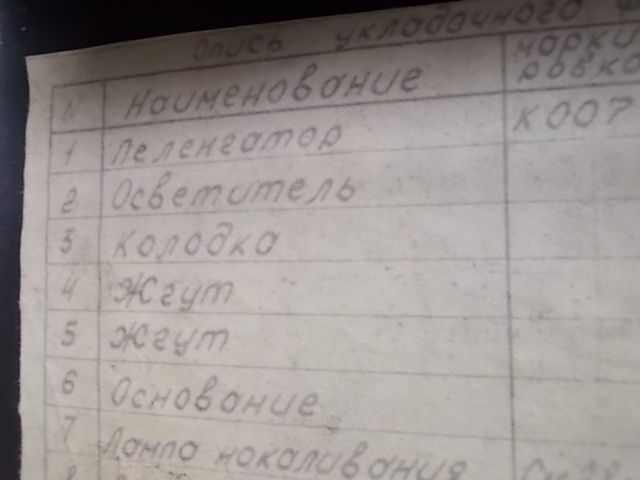 Опись укладочного
N Наименование марки
ровка
1 Пеленгатор К007
2 Осветитель
3 Колодка
4 Жгут
5 Жгут
6 Основание
7 Лампа накаливания
8